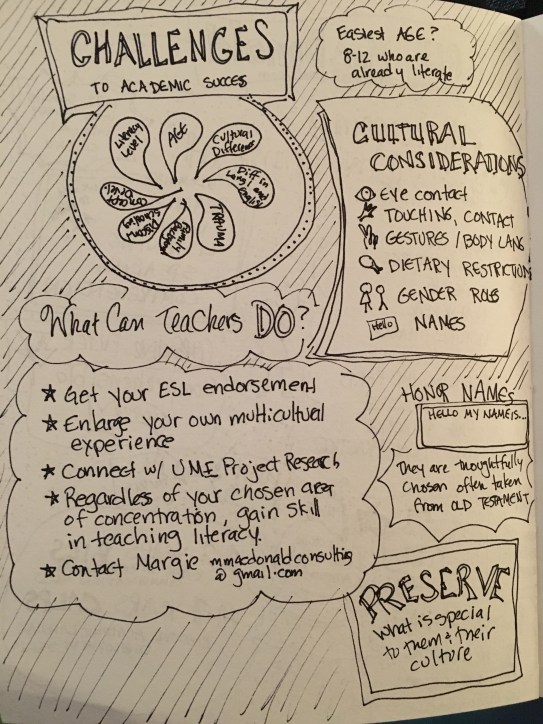 CHALLENGES
TO ACADEMIC SUCCES
Easiest AGE?
8-12 who are
already literate
Literacy
Level
AGE
Cultural
Difference
Diff in
Lang 1 and
TRAUMA
Family
CULTURAL
CONSIDERATIONS
Eye contact
TOUCHING, CONTACT
GESTURES/BODY LANG
DIETARY RESTRICTION
GENDER ROLES
Hello NAMES
What Can Teachers DO?
★ Get your ESL endorsement
★ Enlarge your own multicultural
experience
★ Connect w/ UME Project Research
★ Regardless of your chosen area
of concentration, gain skill
in teaching literacy.
★ Contact Margie mmacdonaldconsulting
@gmail.com
HONOR NAMES
HELLO MY NAME IS...
They are thoughtfully
chosen often taken
from OLD TESTAMENT
PRESERVE
what is special
to them & their
culture